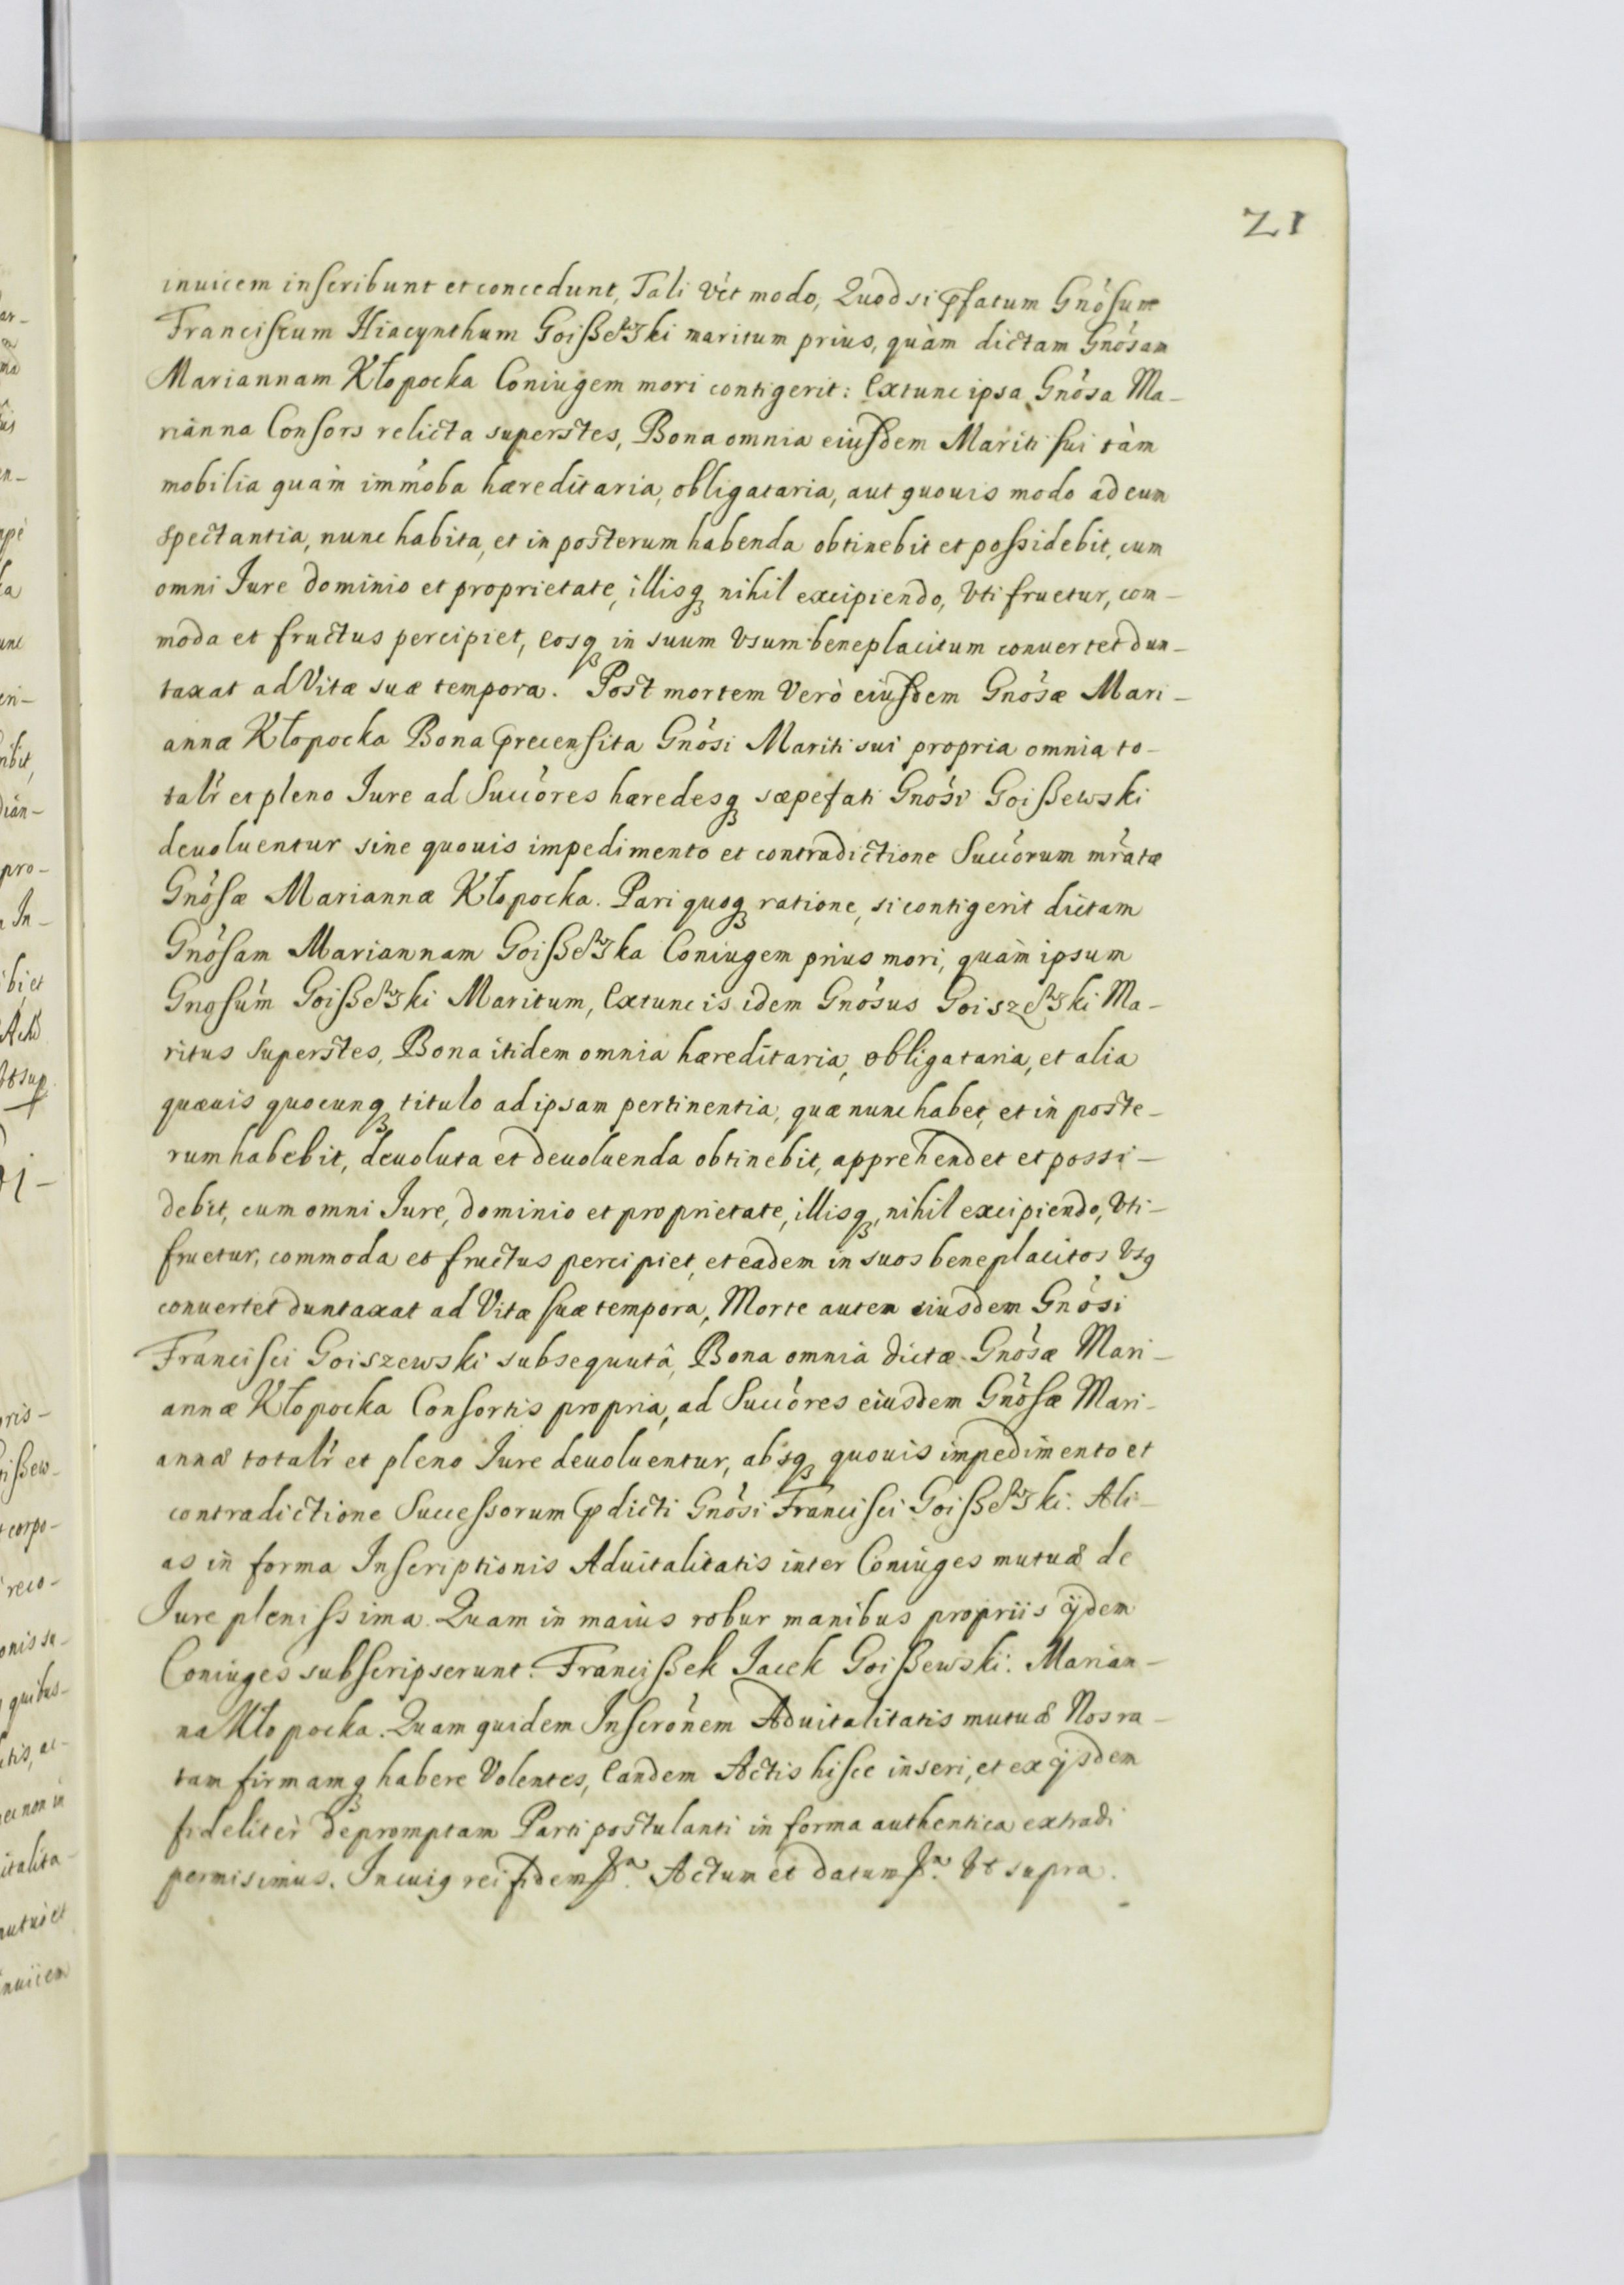 21
inuicem inscribunt et concedunt, Tali vèt modo, Quod si pfatum Gnosum
Franciscum Hiacynthum Goißewski maritum prius, quàm dictam Gnosam
Mariannam Kłopocka Coniugem mori contigerit: Extunc ipsa Gnosa Ma-
rianna Consors relicta superstes, Bona omnia eiusdem Mariti sui tàm
mobilia quàm immoba hæreditaria, obligataria, aut quouis modo ad eum
spectantia, nunc habita, et in posterum habenda obtinebit et possidebit, cum
omni Iure dominio et proprietate, illisq nihil excipiendo, Vti fruetur, com-
moda et fructus percipiet, eosq in suum Vsum beneplacitum conuertet dun-
taxat ad Vitæ suæ tempora. Post mortem Verò eiusdem Gnosæ Mari-
annæ Kłopocka Bona precensita Gnosi Mariti sui propria omnia to-
talr et pleno Iure ad Succores hæredesq sæpefati Gnosi Goißewski
deuoluentur sine quouis impedimento et contradictione Succorum mratæ
Gnosæ Mariannæ Kłopocka. Pari quoq ratione, si contigerit dictam
Gnosam Mariannam Goißewska Coniugem prius mori, quàm ipsum
Gnosum Goißewski Maritum, Extunc is idem Gnosus Goiszewski Ma-
ritus superstes, Bona itidem omnia hæreditaria, obligataria, et alia
quæuis quocunq titulo ad ipsam pertinentia, quæ nunc habet, et in poste-
rum habebit, deuoluta et deuoluenda obtinebit, apprehendet et possi-
debit, cum omni Iure, dominio et proprietate, illisq, nihil excipiendo, Vti-
fruetur, commoda et fructus percipiet, et eadem in suos beneplacitos Vsq
conuertet duntaxat ad Vitæ suæ tempora, Morte autem eiusdem Gnosi
Francisci Goiszewski subsequutâ, Bona omnia dictæ Gnosæ Mari-
annæ Kłopocka Consortis propria, ad Succores eiusdem Gnosæ Mari-
annæ totalr et pleno Iure deuoluentur, absq quouis impedimento et
contradictione Successorum pdicti Gnosi Francisci Goißewski. Ali-
as in forma Inscriptionis Aduitalitatis inter Coniuges mutuæ de
Iure plenissima. Quam in maius robur manibus propriis ijdem
Coniuges subscripserunt. Francißek Iacek Goißewski. Marian-
na Kłopocka. Quam quidem Inscronem Aduitalitatis mutuæ Nos ra-
tam firmamq habere Volentes, Eandem Actis hisce inseri, et ex ijsdem
fideliter depromptam Parti postulanti in forma authentica extradi
permisimus. In cuiq rei fidem pa. Actum et datum pa. Vt supra.